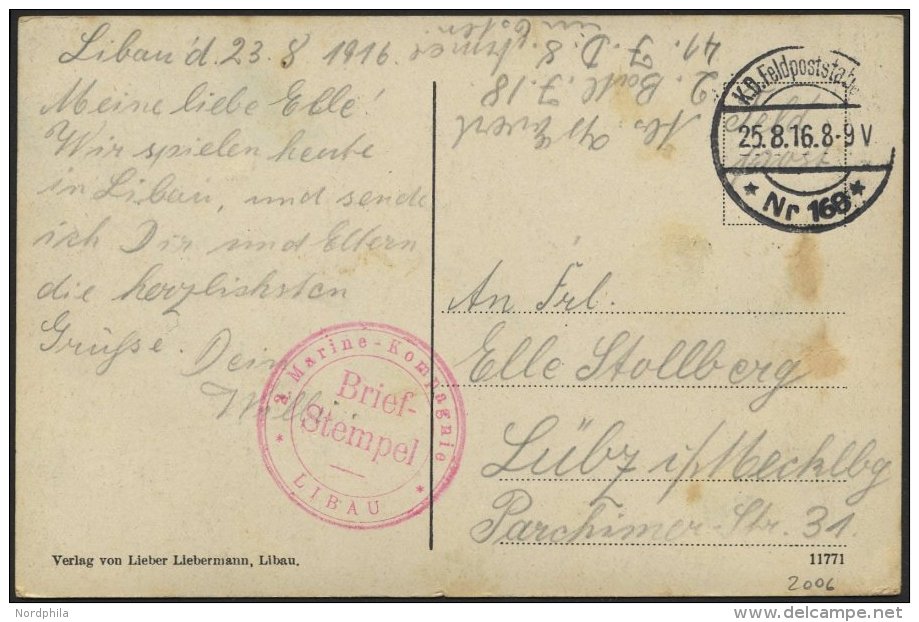 Libau d. 23. 8 1916.
Meine liebe Elle!
Wir spielen heute
in Libau, und sende
ich Dir und Eltern
die herzlichsten
Grüsse. Dein
Willi
2. Batl. J. 18
41. J. D. 8. Armee
im Osten.
K.D. Feldpoststat
25.8.16.8-9 V
* Nr 168 *
Feld
post
An Frl.
Elle Stollberg
Lübz i/Mecklbg
Parchimer-Str. 31
2. Marine-Kompagnie
Brief-
Stempel
* LIBAU *
Verlag von Lieber Liebermann, Libau.
11771
2006
Nordphila
www.delcampe.net